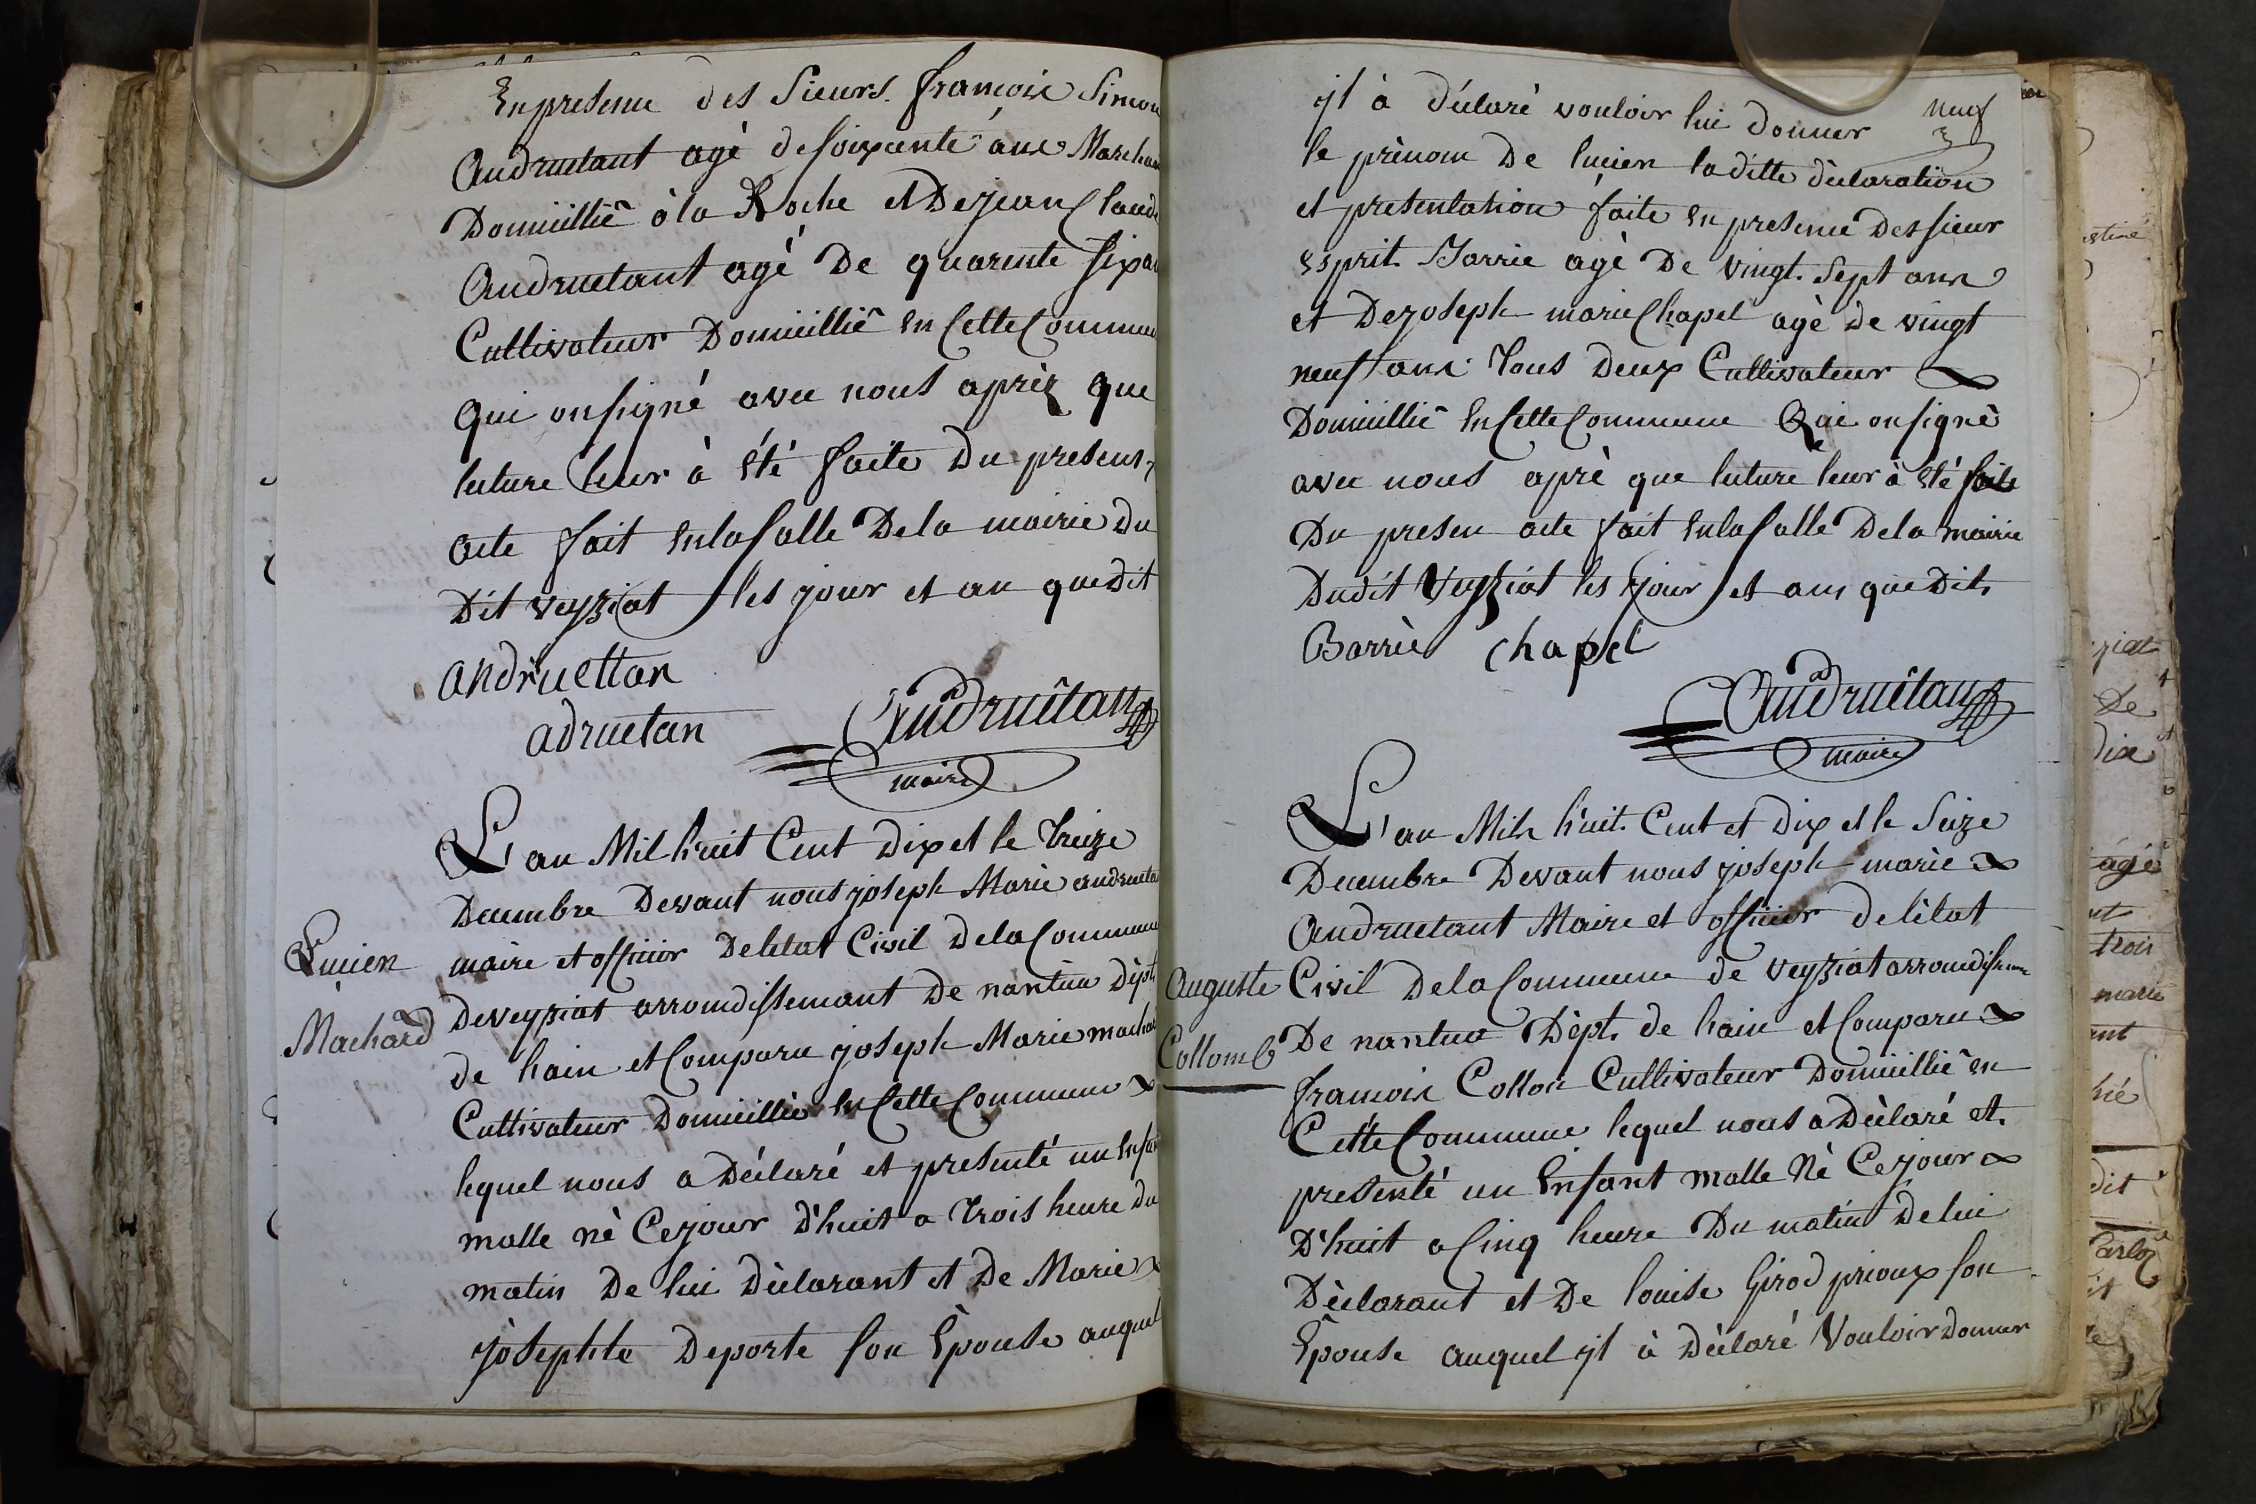 En presence des Sieurs. francoix Simon
Andruetant agè de soixente ans Marchan
Domicillié à la Roche et De jean Claude
Andruetant agè De quarente six an
Cultivateur Domicillié en Cette Commune
Qui on signé avec nous aprèz que
lecture leur à été faite Du present
acte fait en la salle De la mairie Du
Dit veyziat les jour et an que Dit
andruettan
adruetan
Andruêtan
maire
L'an Mil huit Cent Dix et le treize
Decembre Devant nous joseph Marie andrueta
maire et officier De letat Civil De la Commune
De veyziat arrondissemant De nantua Dèpt
de hain et Comparu joseph Marie machar
Cultivateur Domicillié en Cette Commune
lequel nous a Déclaré et presenté un enfan
malle nè Ce jour D'huit a trois heure du
matin De lui Dèclarant et De Marie
jòsephte Deporte son Èpouse auquel
Lucien
Machard
neuf
yl à déclarè vouloir lui donner
le prènom De lucien la ditte dèclaration
et presentation faite en presence Des sieur
esprit Barrie agè De vingt. sept ans
et De joseph marie Chapel agè de vingt
neuf ans tous Deux Cultivateur
Domicillié en Cette Commune Qui on signè
avec nous aprè que lecture leur à été faite
Du presen acte fait en la salle De la mairie
Du dit Veyziat les jour et an que Dit
Barriè chapel
Andruêtan
maire
L'an Mil huit. Cent et Dix et le Seize
Decembre Devant nous joseph marie
Andruetant Maire et officier de létat
Civil De la Commune de veyziat arrondissem
De nantua Dèpt. de hain et Comparu
francoix Collon Cultivateur Domicillié en
Cette Commune lequel nous a Dèclaré et
presenté un Enfant malle Né Ce jour
D'huit a Cinq heure Du matin De lui
Dèclarant et De louise Girod prioux son
Èpouse auquel yl à Dèclaré Vouloir Donner
Auguste
Collomb